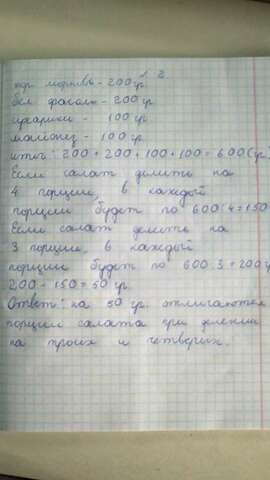 кор. морковь - 200 гр.
бел. фасоль - 200 гр
сухарики - 100 гр
майонез - 100 гр
итог: 200 + 200 + 100 + 100 = 600 (гр.
Если салат делить на
4 порции, в каждой
порции будет по 600:4=150
Если салат делить на
3 порции, в каждой
порции будет по 600:3=200 гр
200 - 150 = 50 гр.
Ответ: на 50 гр. отличаются
порции салата при делении
на троих и четверых.